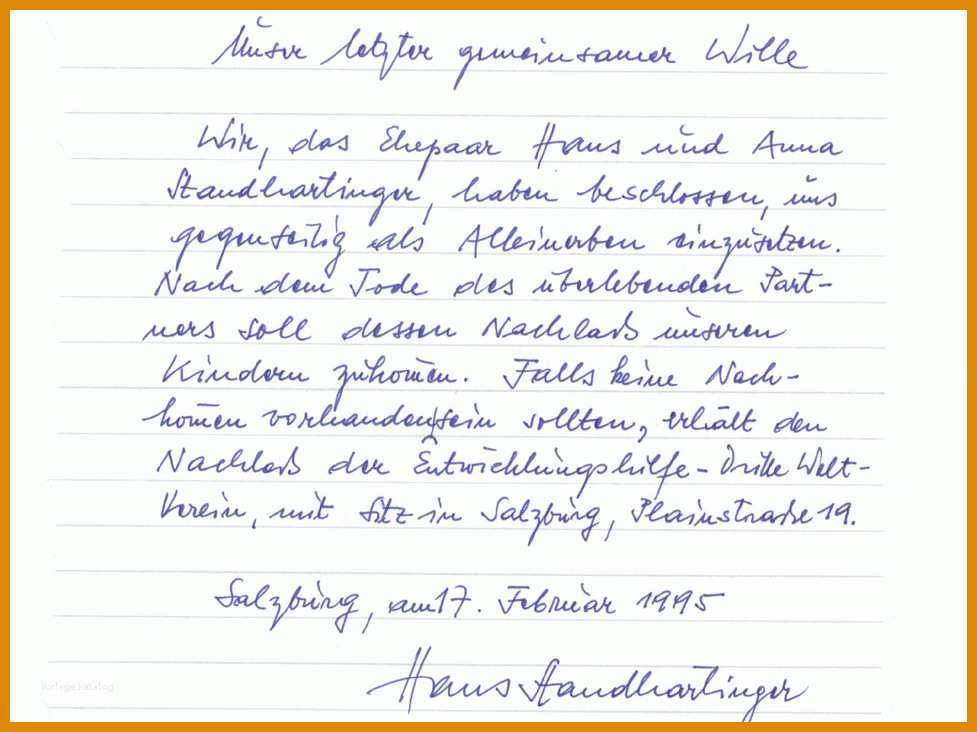 Unser letzter gemeinsamer Wille
Wir, das Ehepaar Hans und Anna
Standhartinger, haben beschlossen, uns
gegenseitig als Alleinerben einzusetzen.
Nach dem Tode des überlebenden Part-
ners soll dessen Nachlaß unseren
Kindern zukom̄en. Falls keine Nach-
kom̄en vorhanden sein sollten, erhält den
Nachlaß der Entwicklungshilfe-Dritte Welt-
Verein, mit Sitz in Salzburg, Plainstraße 19.
Salzburg, am 17. Februar 1995
Hans Standhartinger
vorlage katalog